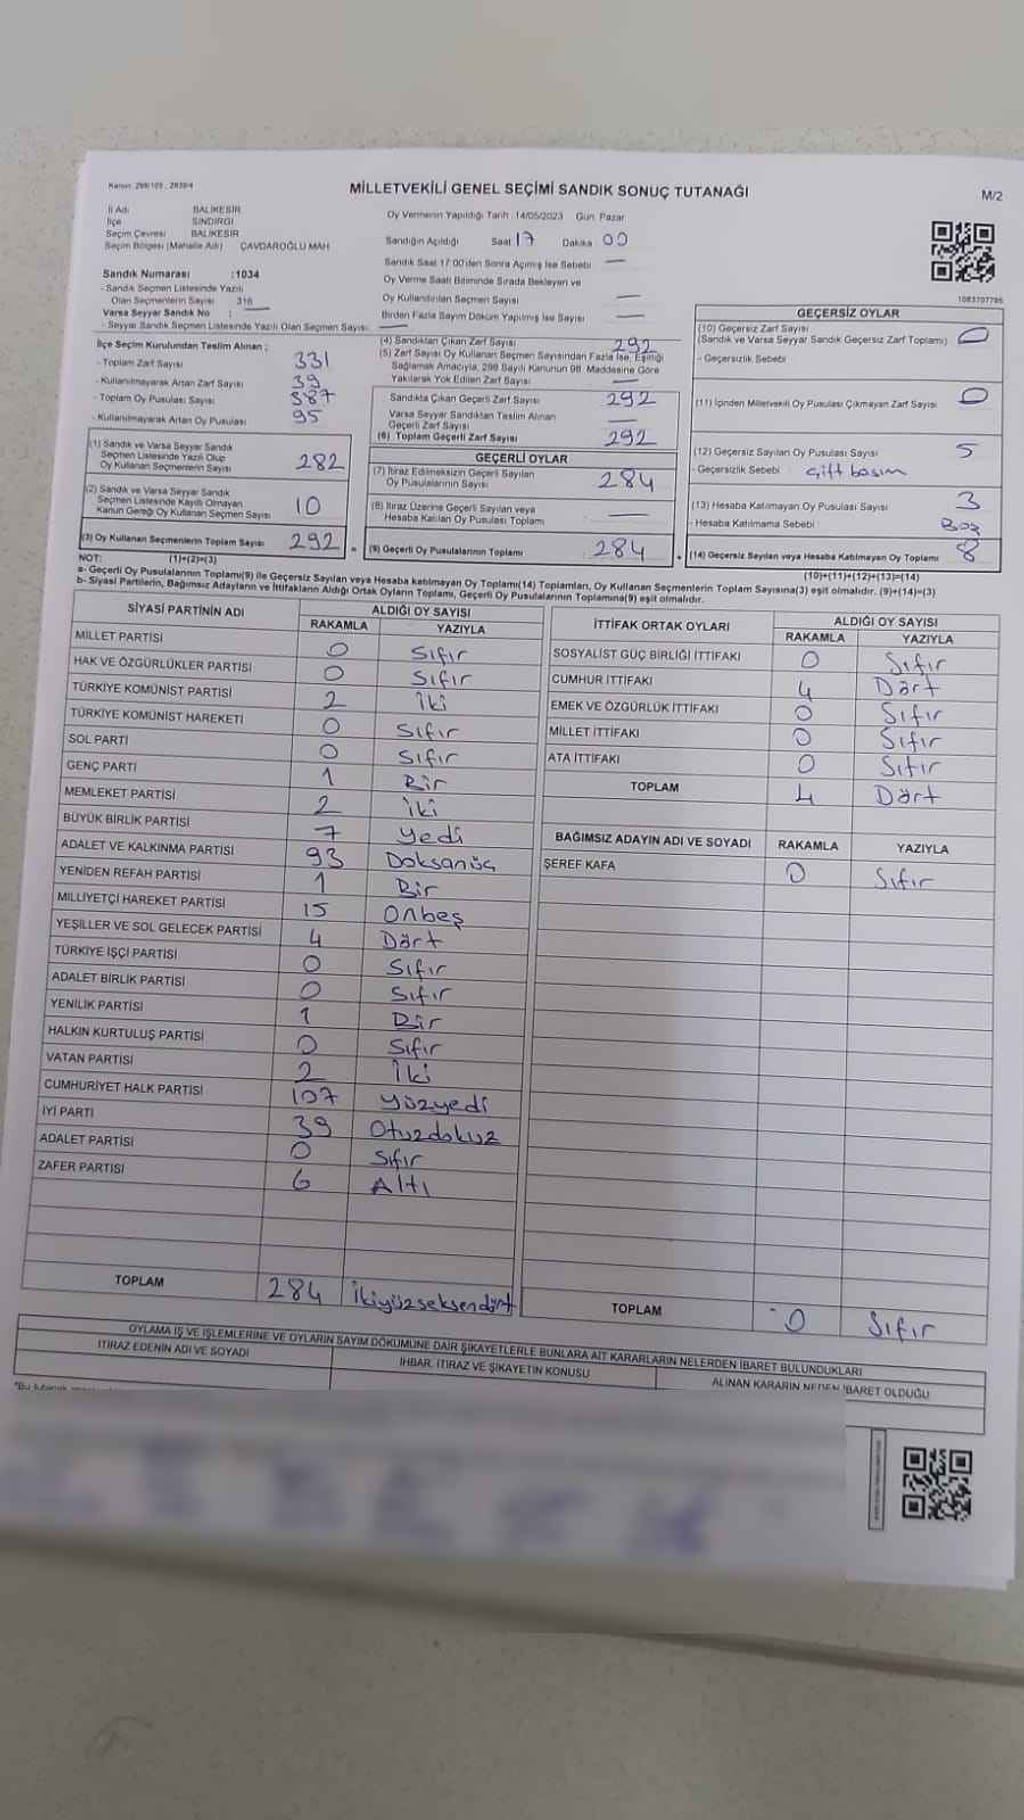 MİLLETVEKİLİ GENEL SEÇİMİ SANDIK SONUÇ TUTANAĞI
M/2
İl Adı BALIKESİR
İlçe SINDIRGI
Seçim Çevresi BALIKESİR
Seçim Bölgesi (Mahalle Adı) ÇAVDAROĞLU MAH
Sandık Numarası :1034
- Sandık Seçmen Listesinde Yazılı
Olan Seçmenlerin Sayısı 316
Varsa Seyyar Sandık No : —
- Seyyar Sandık Seçmen Listesinde Yazılı Olan Seçmen Sayısı —
Oy Vermenin Yapıldığı Tarih :14/05/2023 Gün: Pazar
Sandığın Açıldığı Saat 17 Dakika 00
Sandık Saat 17:00'den Sonra Açılmış İse Sebebi —
Oy Verme Saati Bitiminde Sırada Bekleyen ve
Oy Kullandırılan Seçmen Sayısı —
Birden Fazla Sayım Döküm Yapılmış İse Sayısı —
1083707786
İlçe Seçim Kurulundan Teslim Alınan ;
- Toplam Zarf Sayısı 331
- Kullanılmayarak Artan Zarf Sayısı 39
- Toplam Oy Pusulası Sayısı 387
- Kullanılmayarak Artan Oy Pusulası 95
(1) Sandık ve Varsa Seyyar Sandık
Seçmen Listesinde Yazılı Olup
Oy Kullanan Seçmenlerin Sayısı 282
(2) Sandık ve Varsa Seyyar Sandık
Seçmen Listesinde Kayıtlı Olmayan
Kanun Gereği Oy Kullanan Seçmen Sayısı 10
(3) Oy Kullanan Seçmenlerin Toplam Sayısı 292
(4) Sandıktan Çıkan Zarf Sayısı 292
(5) Zarf Sayısı Oy Kullanan Seçmen Sayısından Fazla İse, Eşitliği
Sağlamak Amacıyla, 298 Sayılı Kanunun 98. Maddesine Göre
Yakılarak Yok Edilen Zarf Sayısı —
Sandıkta Çıkan Geçerli Zarf Sayısı 292
Varsa Seyyar Sandıktan Teslim Alınan
Geçerli Zarf Sayısı —
(6) Toplam Geçerli Zarf Sayısı 292
GEÇERLİ OYLAR
(7) İtiraz Edilmeksizin Geçerli Sayılan
Oy Pusulalarının Sayısı 284
(8) İtiraz Üzerine Geçerli Sayılan veya
Hesaba Katılan Oy Pusulası Toplamı —
= (9) Geçerli Oy Pusulalarının Toplamı 284 +
GEÇERSİZ OYLAR
(10) Geçersiz Zarf Sayısı
(Sandık ve Varsa Seyyar Sandık Geçersiz Zarf Toplamı) 0
- Geçersizlik Sebebi
(11) İçinden Milletvekili Oy Pusulası Çıkmayan Zarf Sayısı 0
(12) Geçersiz Sayılan Oy Pusulası Sayısı 5
- Geçersizlik Sebebi çift basım
(13) Hesaba Katılmayan Oy Pusulası Sayısı 3
- Hesaba Katılmama Sebebi Boş
(14) Geçersiz Sayılan veya Hesaba Katılmayan Oy Toplamı 8
NOT: (1)+(2)=(3)
(10)+(11)+(12)+(13)=(14)
a- Geçerli Oy Pusulalarının Toplamı(9) ile Geçersiz Sayılan veya Hesaba katılmayan Oy Toplamı(14) Toplamları, Oy Kullanan Seçmenlerin Toplam Sayısına(3) eşit olmalıdır. (9)+(14)=(3)
b- Siyasi Partilerin, Bağımsız Adayların ve İttifakların Aldığı Ortak Oyların Toplamı, Geçerli Oy Pusulalarının Toplamına(9) eşit olmalıdır.
SİYASİ PARTİNİN ADI ALDIĞI OY SAYISI
RAKAMLA YAZIYLA
MİLLET PARTİSİ 0 Sıfır
HAK VE ÖZGÜRLÜKLER PARTİSİ 0 Sıfır
TÜRKİYE KOMÜNİST PARTİSİ 2 İki
TÜRKİYE KOMÜNİST HAREKETİ 0 Sıfır
SOL PARTİ 0 Sıfır
GENÇ PARTİ 1 Bir
MEMLEKET PARTİSİ 2 İki
BÜYÜK BİRLİK PARTİSİ 7 Yedi
ADALET VE KALKINMA PARTİSİ 93 Doksanüç
YENİDEN REFAH PARTİSİ 1 Bir
MİLLİYETÇİ HAREKET PARTİSİ 15 Onbeş
YEŞİLLER VE SOL GELECEK PARTİSİ 4 Dört
TÜRKİYE İŞÇİ PARTİSİ 0 Sıfır
ADALET BİRLİK PARTİSİ 0 Sıfır
YENİLİK PARTİSİ 1 Bir
HALKIN KURTULUŞ PARTİSİ 0 Sıfır
VATAN PARTİSİ 2 İki
CUMHURİYET HALK PARTİSİ 107 Yüzyedi
İYİ PARTİ 39 Otuzdokuz
ADALET PARTİSİ 0 Sıfır
ZAFER PARTİSİ 6 Altı
TOPLAM 284 İkiyüzseksendört
İTTİFAK ORTAK OYLARI ALDIĞI OY SAYISI
RAKAMLA YAZIYLA
SOSYALİST GÜÇ BİRLİĞİ İTTİFAKI 0 Sıfır
CUMHUR İTTİFAKI 4 Dört
EMEK VE ÖZGÜRLÜK İTTİFAKI 0 Sıfır
MİLLET İTTİFAKI 0 Sıfır
ATA İTTİFAKI 0 Sıfır
TOPLAM 4 Dört
BAĞIMSIZ ADAYIN ADI VE SOYADI RAKAMLA YAZIYLA
ŞEREF KAFA 0 Sıfır
TOPLAM 0 Sıfır
OYLAMA İŞ VE İŞLEMLERİNE VE OYLARIN SAYIM DÖKÜMÜNE DAİR ŞİKAYETLERLE BUNLARA AİT KARARLARIN NELERDEN İBARET BULUNDUKLARI
İTİRAZ EDENİN ADI VE SOYADI
İHBAR, İTİRAZ VE ŞİKAYETİN KONUSU
ALINAN KARARIN NEDEN İBARET OLDUĞU